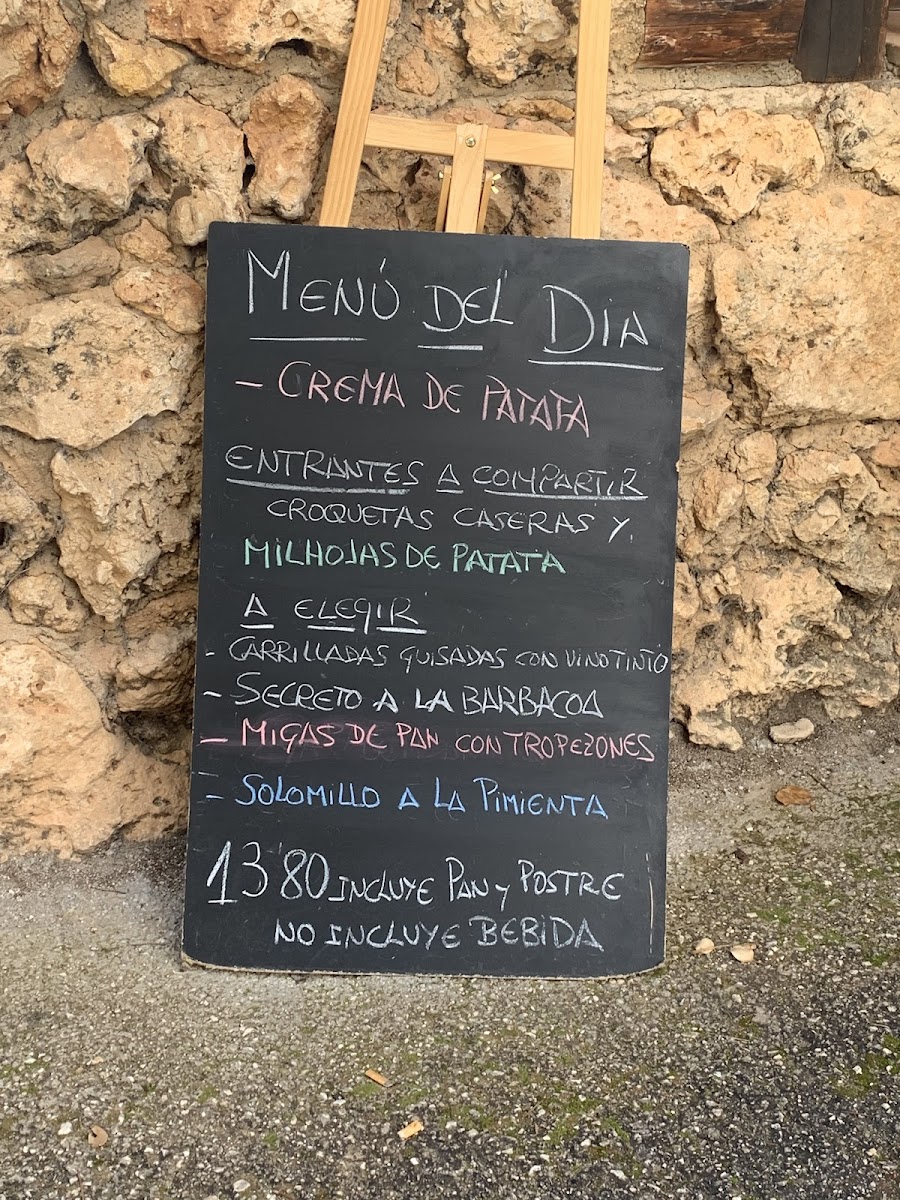 MENÚ DEL DIA
- CREMA DE PATATA
ENTRANTES A COMPARTIR
CROQUETAS CASERAS Y
MILHOJAS DE PATATA
A ELEGIR
- CARRILLADAS GUISADAS CON VINO TINTO
- SECRETO A LA BARBACOA
- MIGAS DE PAN CON TROPEZONES
- SOLOMILLO A LA PIMIENTA
13'80 INCLUYE PAN y POSTRE
NO INCLUYE BEBIDA